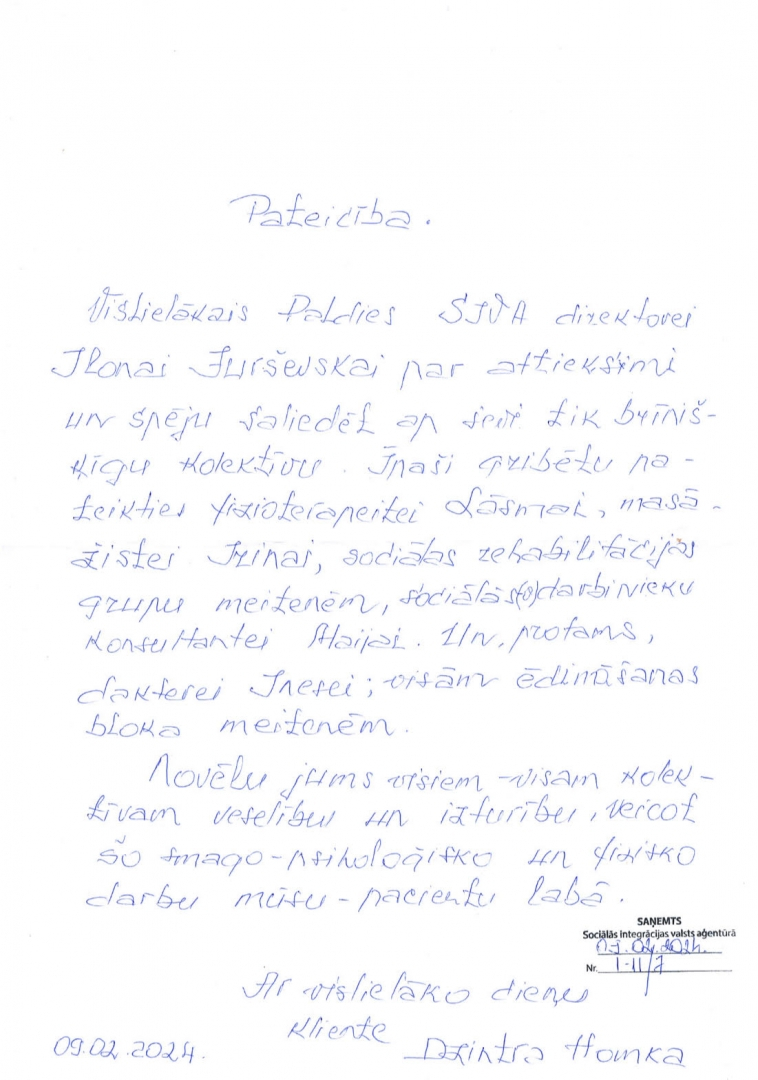 Pateicība.
Vislielākais Paldies SIVA direktorei
Ilonai Jurševskai par attieksmi
un spēju saliedēt ap sevi tik brīniš-
ķīgu kolektīvu. Īpaši gribētu pa-
teikties fizioterapeitei Lāsmai, masā-
žistei Irinai, sociālās rehabilitācijas
grupu meitenēm, sociālās(o)darbinieku
konsultantei Maijai. Un, protams,
dakterei Inesei; visām ēdināšanas
bloka meitenēm.
Novēlu jums visiem-visam kolek-
tīvam veselību un izturību, veicot
šo smago-psiholoģisko un fizisko
darbu mūsu-pacientu labā.
SAŅEMTS
Sociālās integrācijas valsts aģentūrā
02.2024.
Nr. 1-11/7
Ar vislielāko cieņu
kliente
09.02.2024. Dzintra